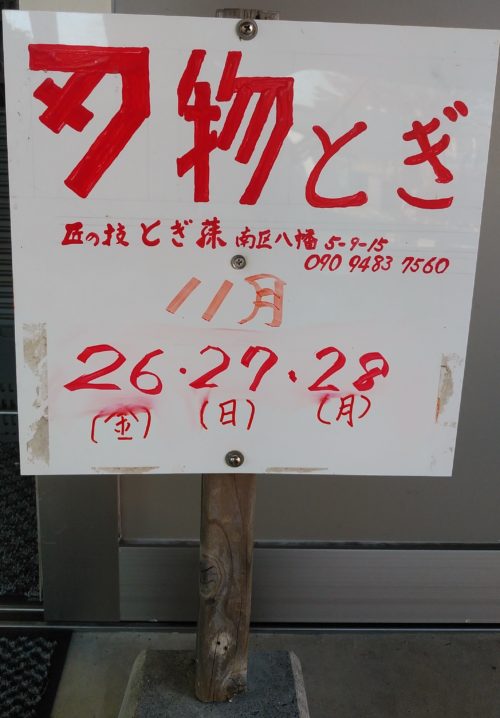 刃物とぎ
匠の技 とぎ蓀 南区八幡 5-9-15
090 9483 7560
11月
26・27・28
(金) (日) (月)